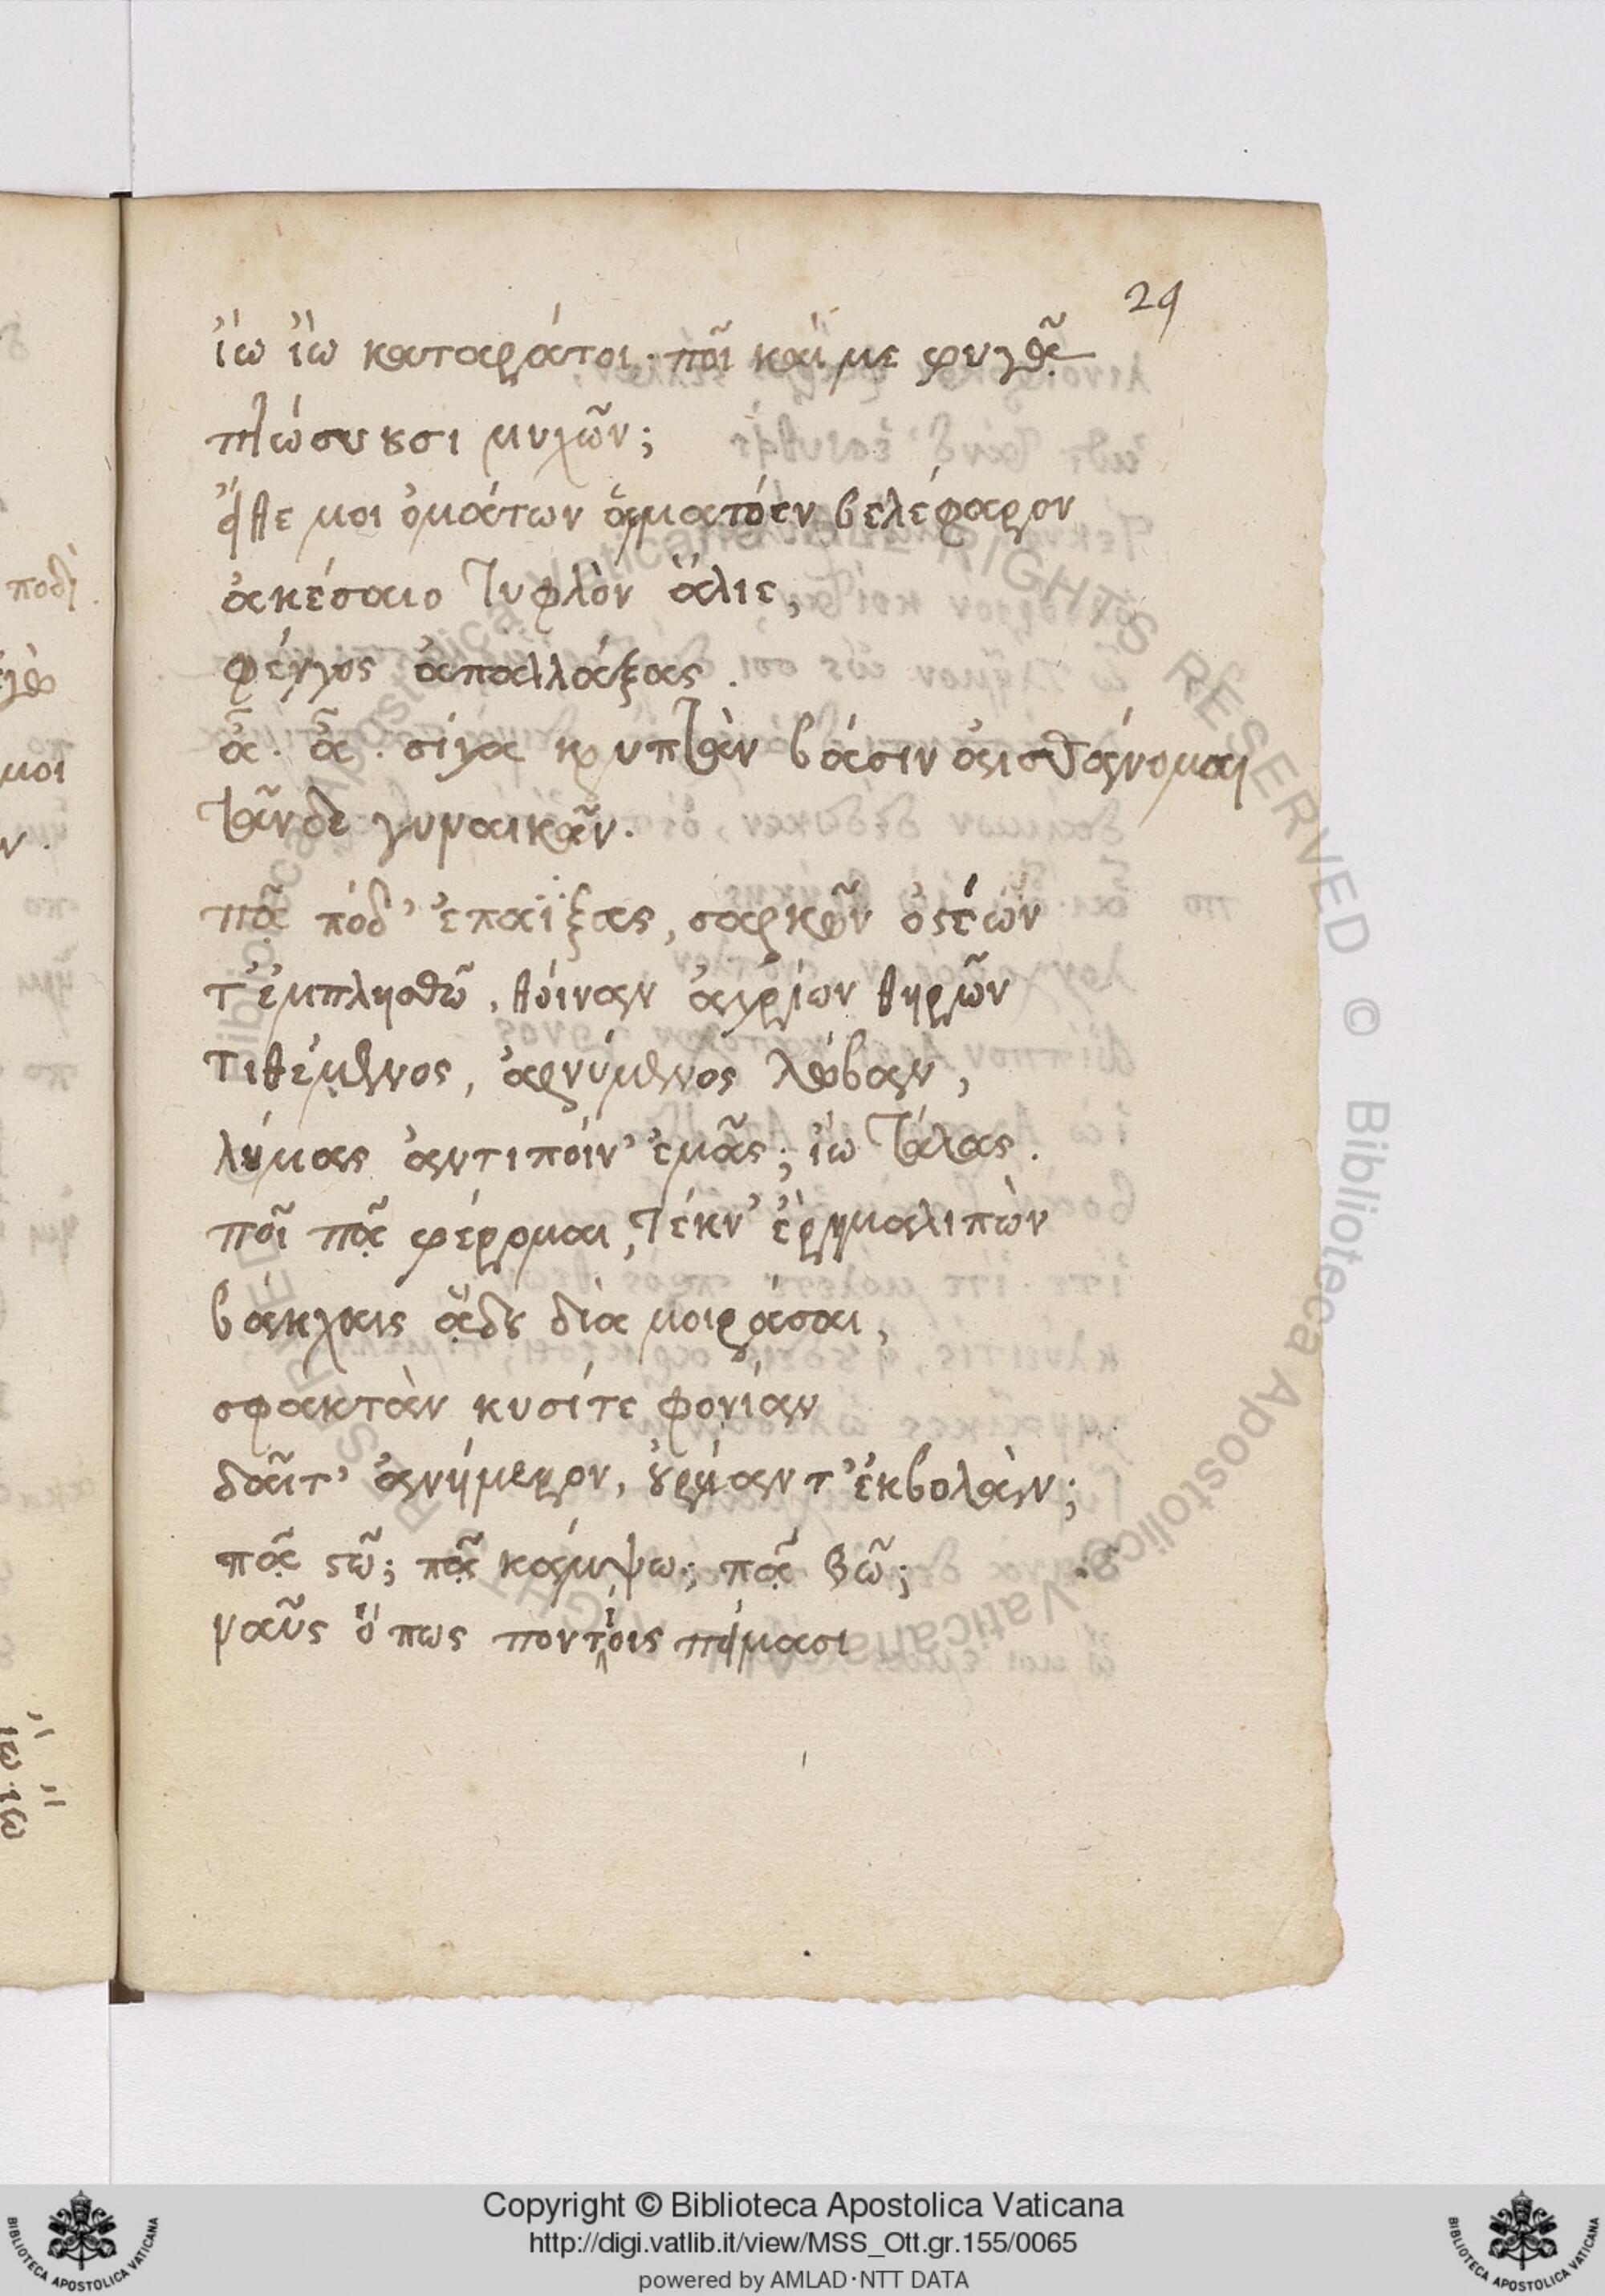 29
ἰὼ ἰὼ καταράτοι· ποῖ καί με φυγᾷ
πτώσουσι μυχῶν;
εἴθε μοι ὀμάτων αἱματόεν βελέφαρον
ἀκέσαιο τυφλὸν ἅλιε,
φέγγος ἀπαλλάξας.
ἆ. ἆ. σίγα κρυπτὰν βάσιν αἰσθάνομαι
τᾶνδε γυναικᾶν.
πᾶ πόδ' ἐπαΐξας, σαρκῶν ὀστέων
τ' ἐμπλησθῶ, θοίναν ἀγρίων θηρῶν
τιθέμενος, ἀρνύμενος λώβαν,
λύμας ἀντίποιν' ἐμᾶς; ἰὼ τάλας.
ποῖ πᾷ φέρομαι, τέκν' ἔρημα λιπὼν
βάκχαις ᾅδου διαμοιράσαι,
σφακτὰν κυσίτε φονίαν
δαῖτ' ἀνήμερον, οὐρείαν τ' ἐκβολάν;
πᾷ στῶ; πᾷ κάμψω; πᾷ βῶ;
ναῦς ὅπως ποντίοις πείμασι
ποδὶ
μοι
ἰὼ ἰὼ
Copyright © Biblioteca Apostolica Vaticana
http://digi.vatlib.it/view/MSS_Ott.gr.155/0065
powered by AMLAD·NTT DATA
BIBLIOTECA APOSTOLICA VATICANA
BIBLIOTECA APOSTOLICA VATICANA